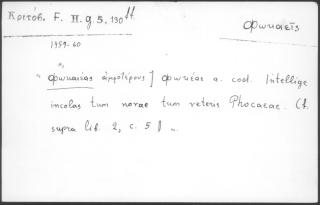 Κριτόβ. F. H. g 5, 130 H.
Φωκαιεῖς
1959-60
" Φωκαιέας ἀμφοτέρους] φωκέας a. cod. Intellige
incolas tum novae tum veteris Phocaeae. Cf.
supra lib. 2, c. 5 § ".